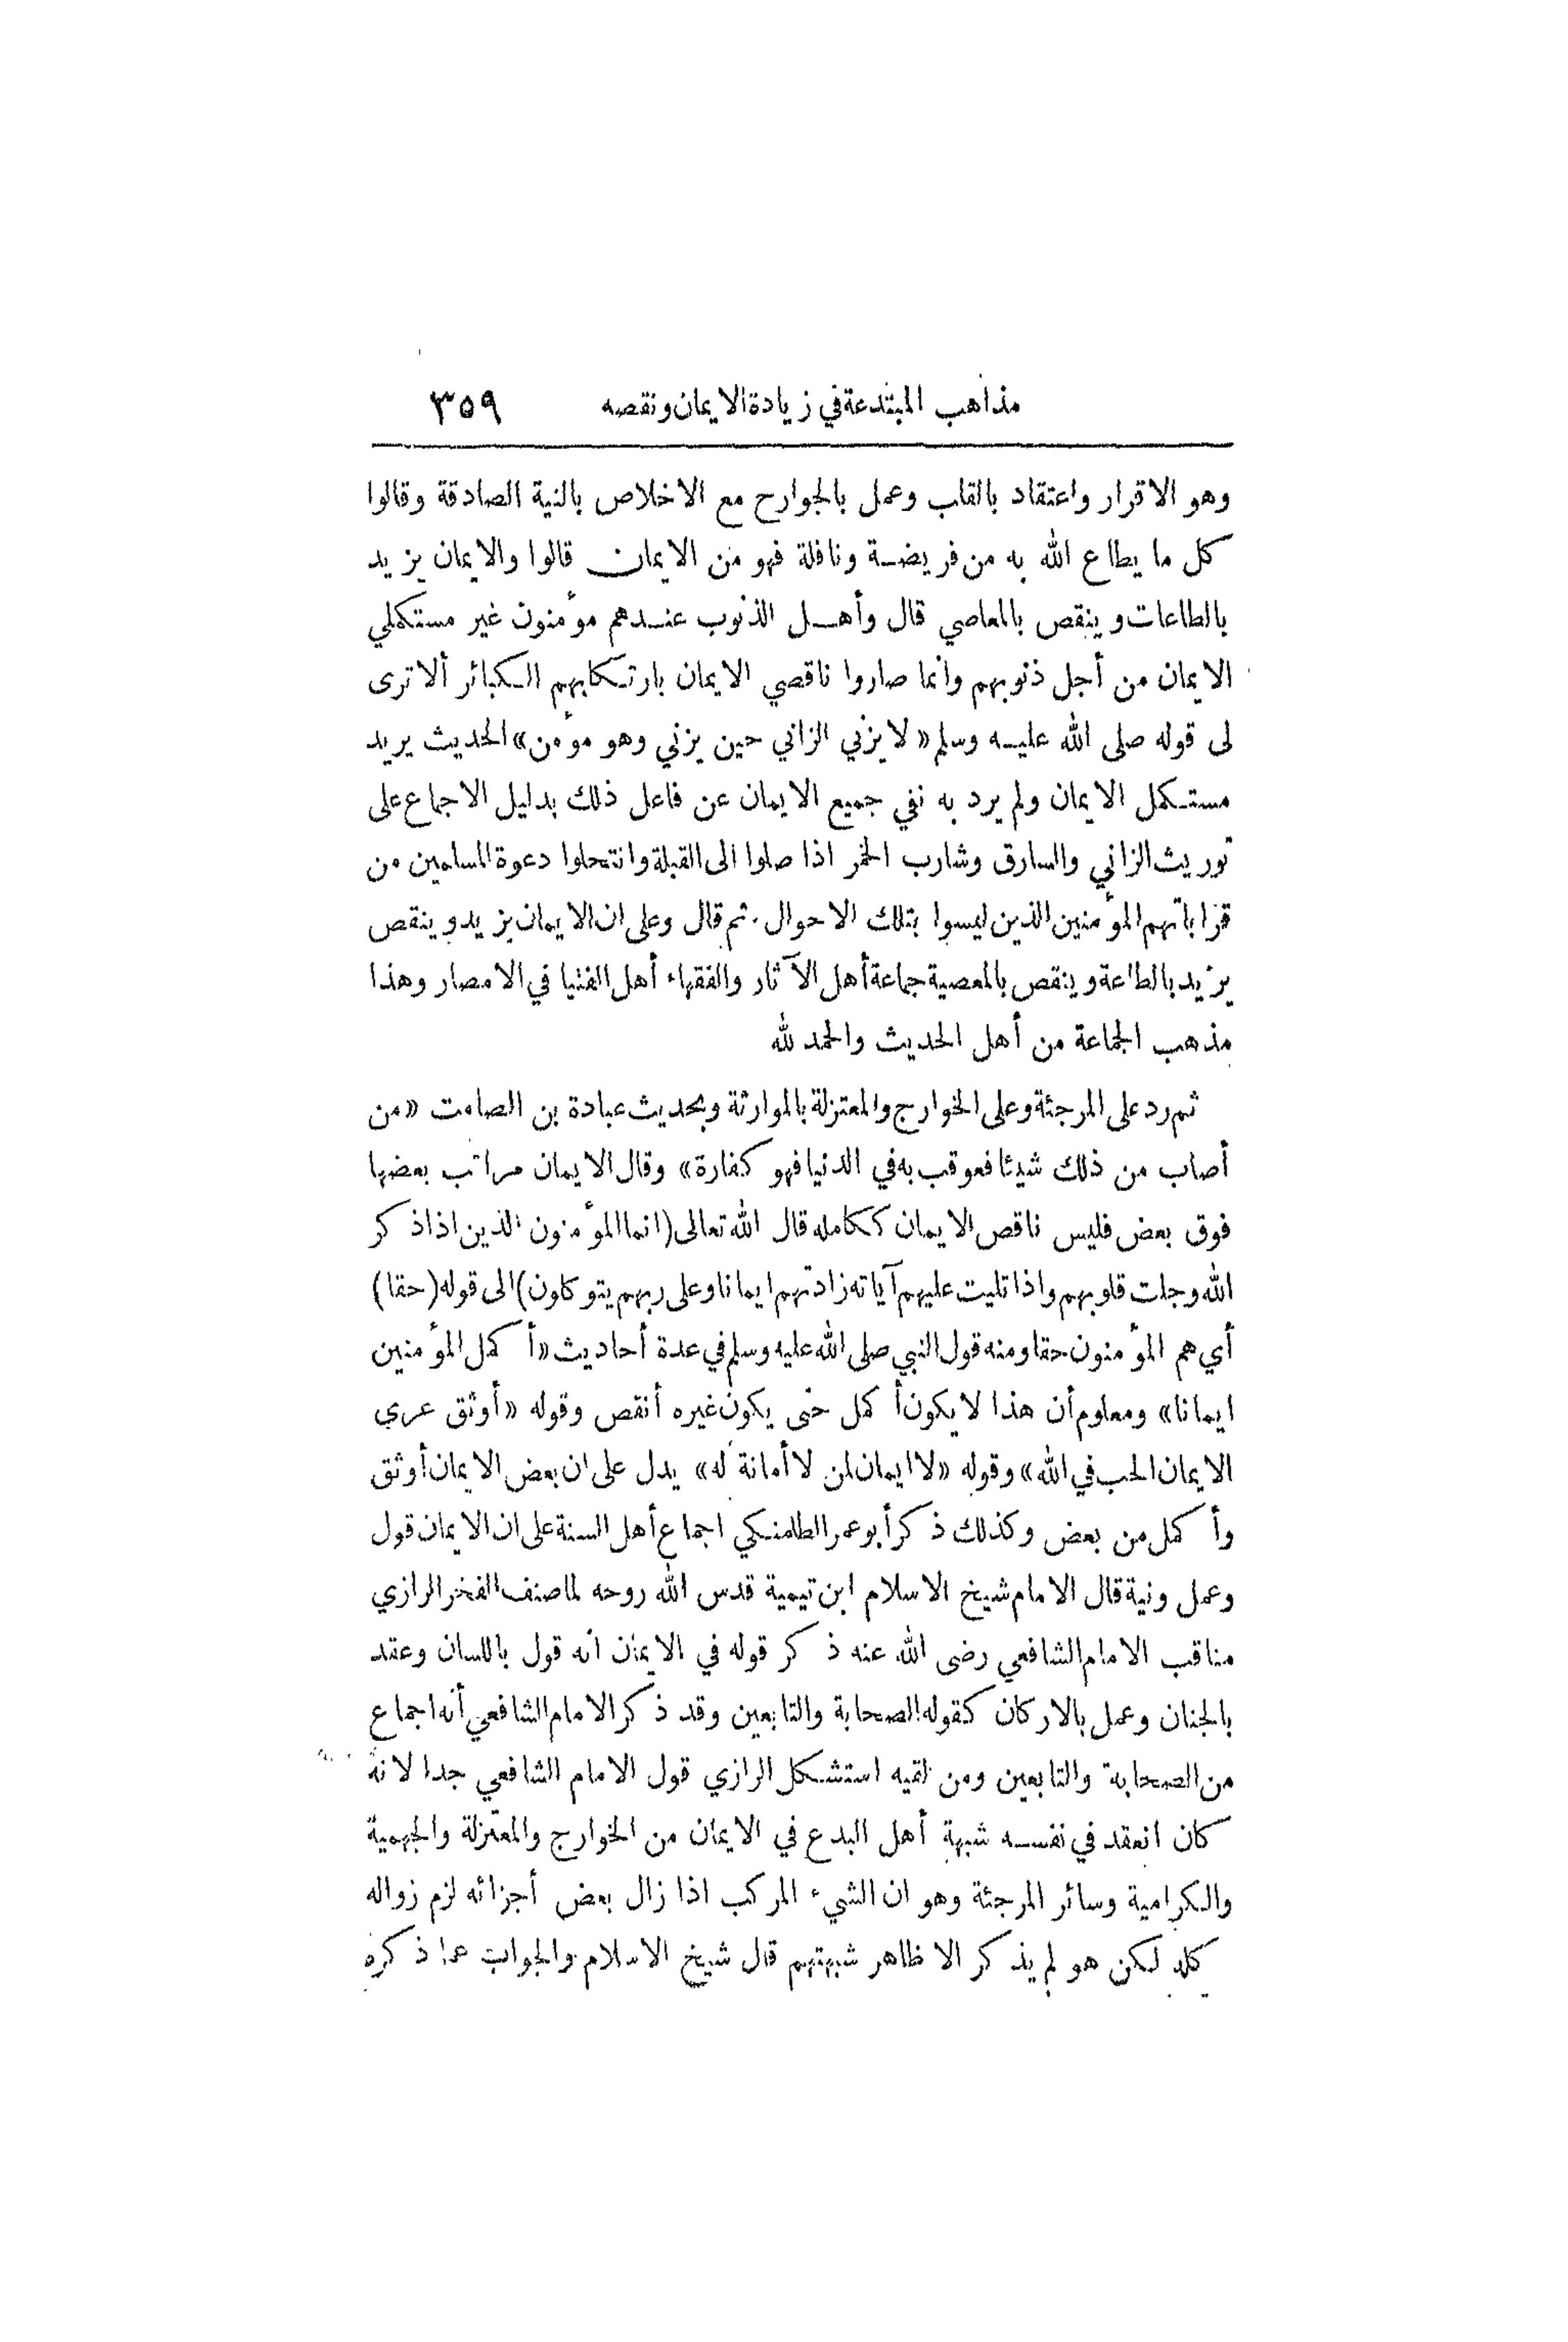 مذاهب المبتدعة في زيادة الايمان ونقصه ٣٥٩
وهو الاقرار واعتقاد بالقلب وعمل بالجوارح مع الاخلاص بالنية الصادقة وقالوا
كل ما يطاع الله به من فريضة ونافلة فهو من الايمان قالوا والايمان يزيد
بالطاعات وينقص بالمعاصي قال وأهل الذنوب عندهم مؤمنون غير مستكملي
الايمان من أجل ذنوبهم وانما صاروا ناقصي الايمان بارتكابهم الكبائر ألا ترى
لى قوله صلى الله عليه وسلم «لا يزني الزاني حين يزني وهو مؤمن» الحديث يريد
مستكمل الايمان ولم يرد به نفي جميع الايمان عن فاعل ذلك بدليل الاجماع على
توريث الزاني والسارق وشارب الخمر اذا صلوا الى القبلة وانتحلوا دعوة المسلمين من
قراباتهم المؤمنين الذين ليسوا بتلك الاحوال . ثم قال وعلى ان الايمان يزيد وينقص
يزيد بالطاعة وينقص بالمعصية جماعة أهل الآثار والفقهاء أهل الفتيا في الامصار وهذا
مذهب الجماعة من أهل الحديث والحمد لله
ثم رد على المرجئة وعلى الخوارج والمعتزلة بالموارثة وبحديث عبادة بن الصامت «من
أصاب من ذلك شيئا فعوقب به في الدنيا فهو كفارة» وقال الايمان مراتب بعضها
فوق بعض فليس ناقص الايمان ككامله قال الله تعالى (انما المؤمنون الذين اذا ذكر
الله وجلت قلوبهم واذا تليت عليهم آياته زادتهم ايمانا وعلى ربهم يتوكلون) الى قوله (حقا)
أي هم المؤمنون حقا ومنه قول النبي صلى الله عليه وسلم في عدة أحاديث «أكمل المؤمنين
ايمانا» ومعلوم أن هذا لا يكون أكمل حتى يكون غيره أنقص وقوله «أوثق عرى
الايمان الحب في الله» وقوله «لا ايمان لمن لا أمانة له» يدل على ان بعض الايمان أوثق
وأكمل من بعض وكذلك ذكر أبو عمر الطلمنكي اجماع أهل السنة على ان الايمان قول
وعمل ونية قال الامام شيخ الاسلام ابن تيمية قدس الله روحه لما صنف الفخر الرازي
مناقب الامام الشافعي رضى الله عنه ذكر قوله في الايمان انه قول باللسان وعقد
بالجنان وعمل بالاركان كقوله الصحابة والتابعين وقد ذكر الامام الشافعي أنه اجماع
من الصحابة والتابعين ومن لقيه استشكل الرازي قول الامام الشافعي جدا لانه
كان انعقد في نفسه شبهة أهل البدع في الايمان من الخوارج والمعتزلة والجهمية
والكرامية وسائر المرجئة وهو ان الشيء المركب اذا زال بعض أجزائه لزم زواله
كله لكن هو لم يذكر الا ظاهر شبهتهم قال شيخ الاسلام والجواب عما ذكره